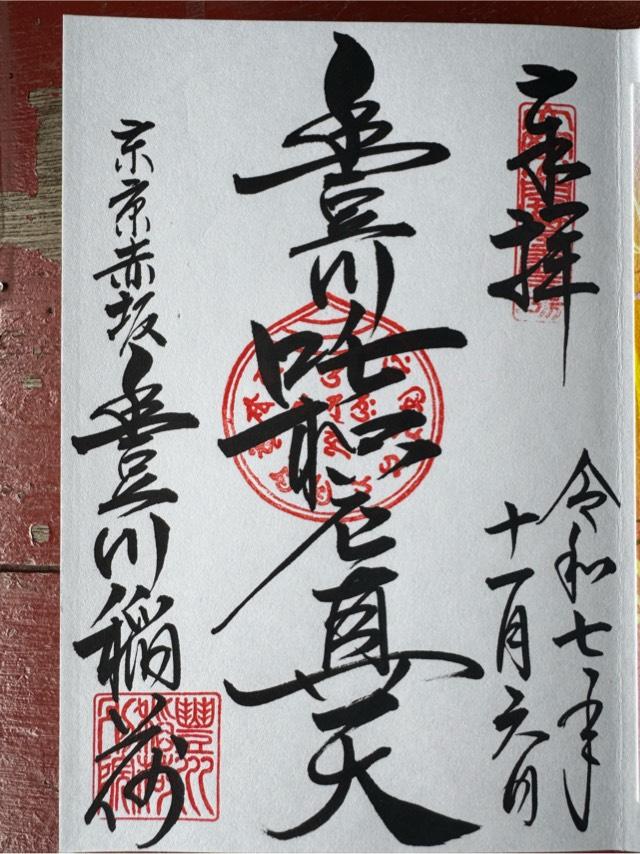 奉拝
令和七年
十一月六日
豊川吒枳尼真天
東京赤坂豊川稲荷